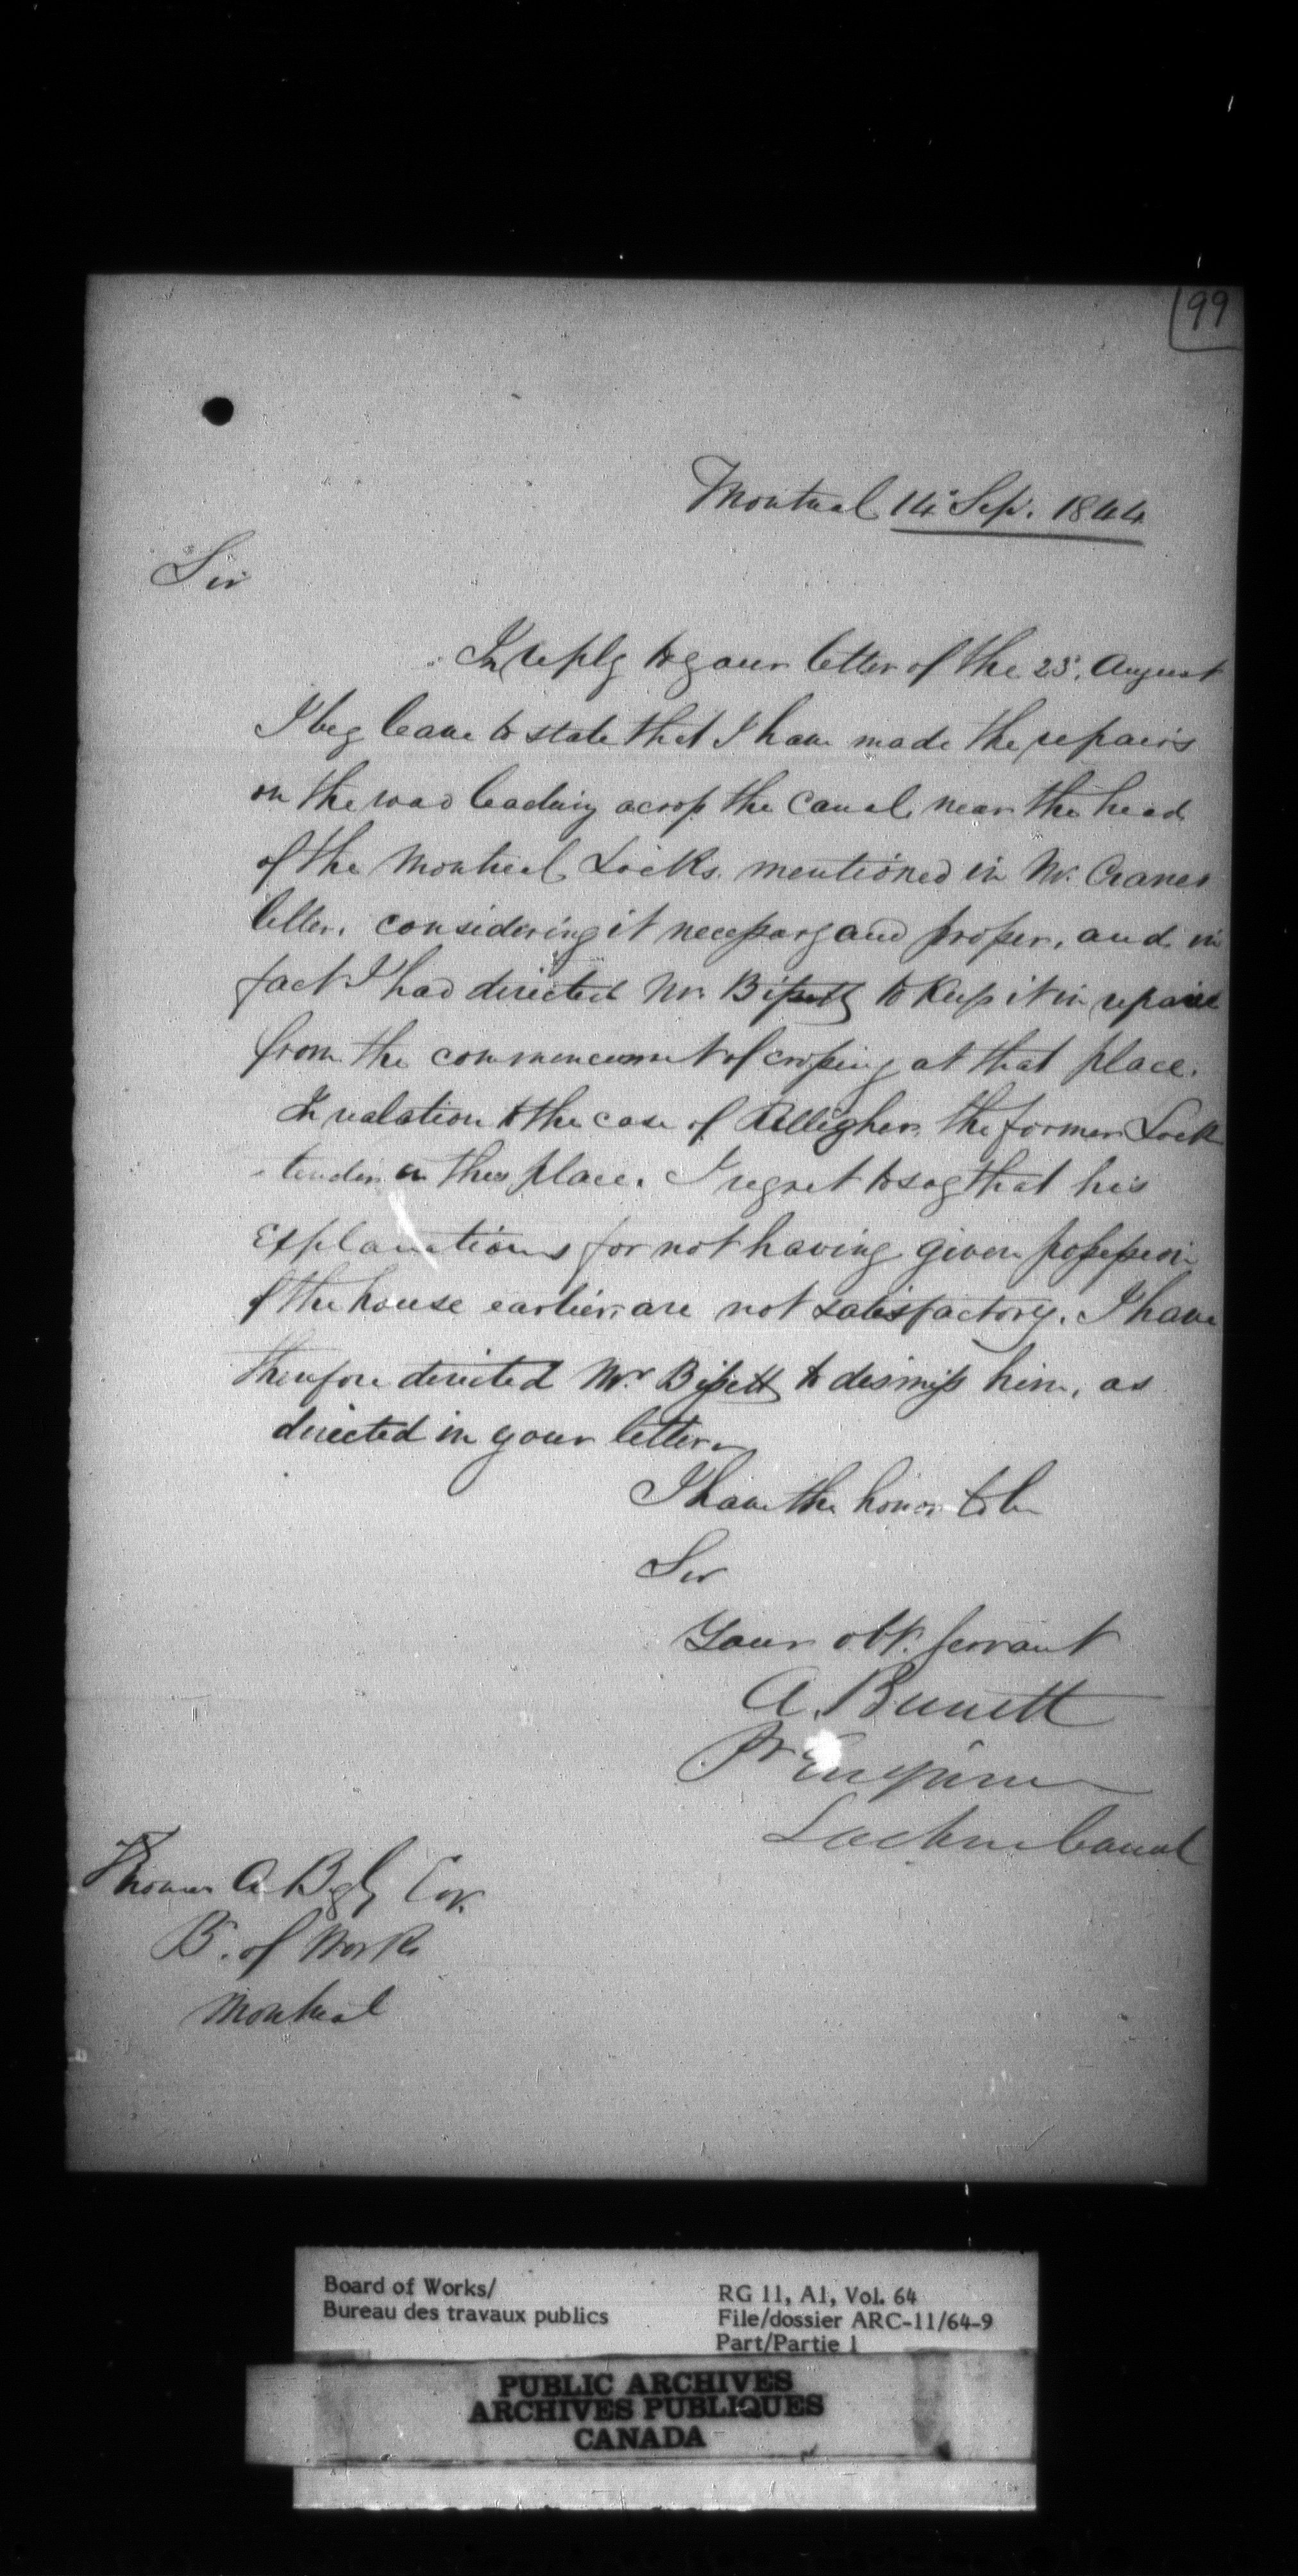 99
Montreal 14 Sep. 1844
Sir
In reply to your letter of the 23. August
I beg leave to state that I have made the repairs
on the road leading across the Canal, near the head
of the Montreal Locks. mentioned in Mr. Cranes
letter. considering it necessary and proper, and in
fact I had directed Mr. Bissett to keep it in repair
from the commencement of crossing at that place.
In relation to the case of the former Lock
tender in this place. I regret to say that his
explanations for not having given possession
of the house earlier, are not satisfactory. I have
therefore directed Mr. Bissett to dismiss him, as
directed in your letter
I have the honor to be
Sir
Your obt. servant
A. Barrett
Engineer
Lachine Canal
Thomas A. Begly Esq.
Bd. of Works
Montreal
Board of Works/
Bureau des travaux publics
RG 11, A1, Vol. 64
File/dossier ARC-11/64-9
Part/Partie 1
PUBLIC ARCHIVES
ARCHIVES PUBLIQUES
CANADA